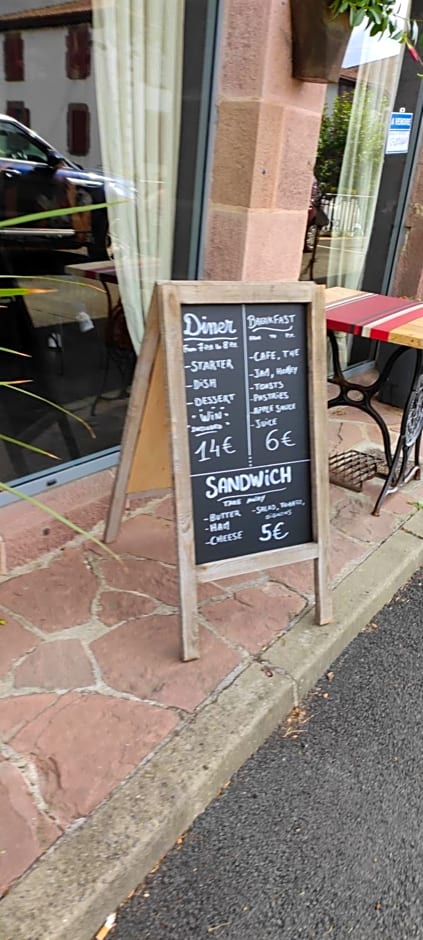 Diner
From 7 P.M to 8 P.M
-STARTER
-DISH
-DESSERT
-WIN-
INCLUDED
14€
BREAKFAST
-CAFE, THE
-JAM, HONEY
-TOASTS
-PASTRIES
-APPLE SAUCE
-JUICE
6€
SANDWiCH
TAKE AWAY
-BUTTER
-HAM
-CHEESE
-SALAD, TOMATO,
ONIONS
5€
A VENDRE